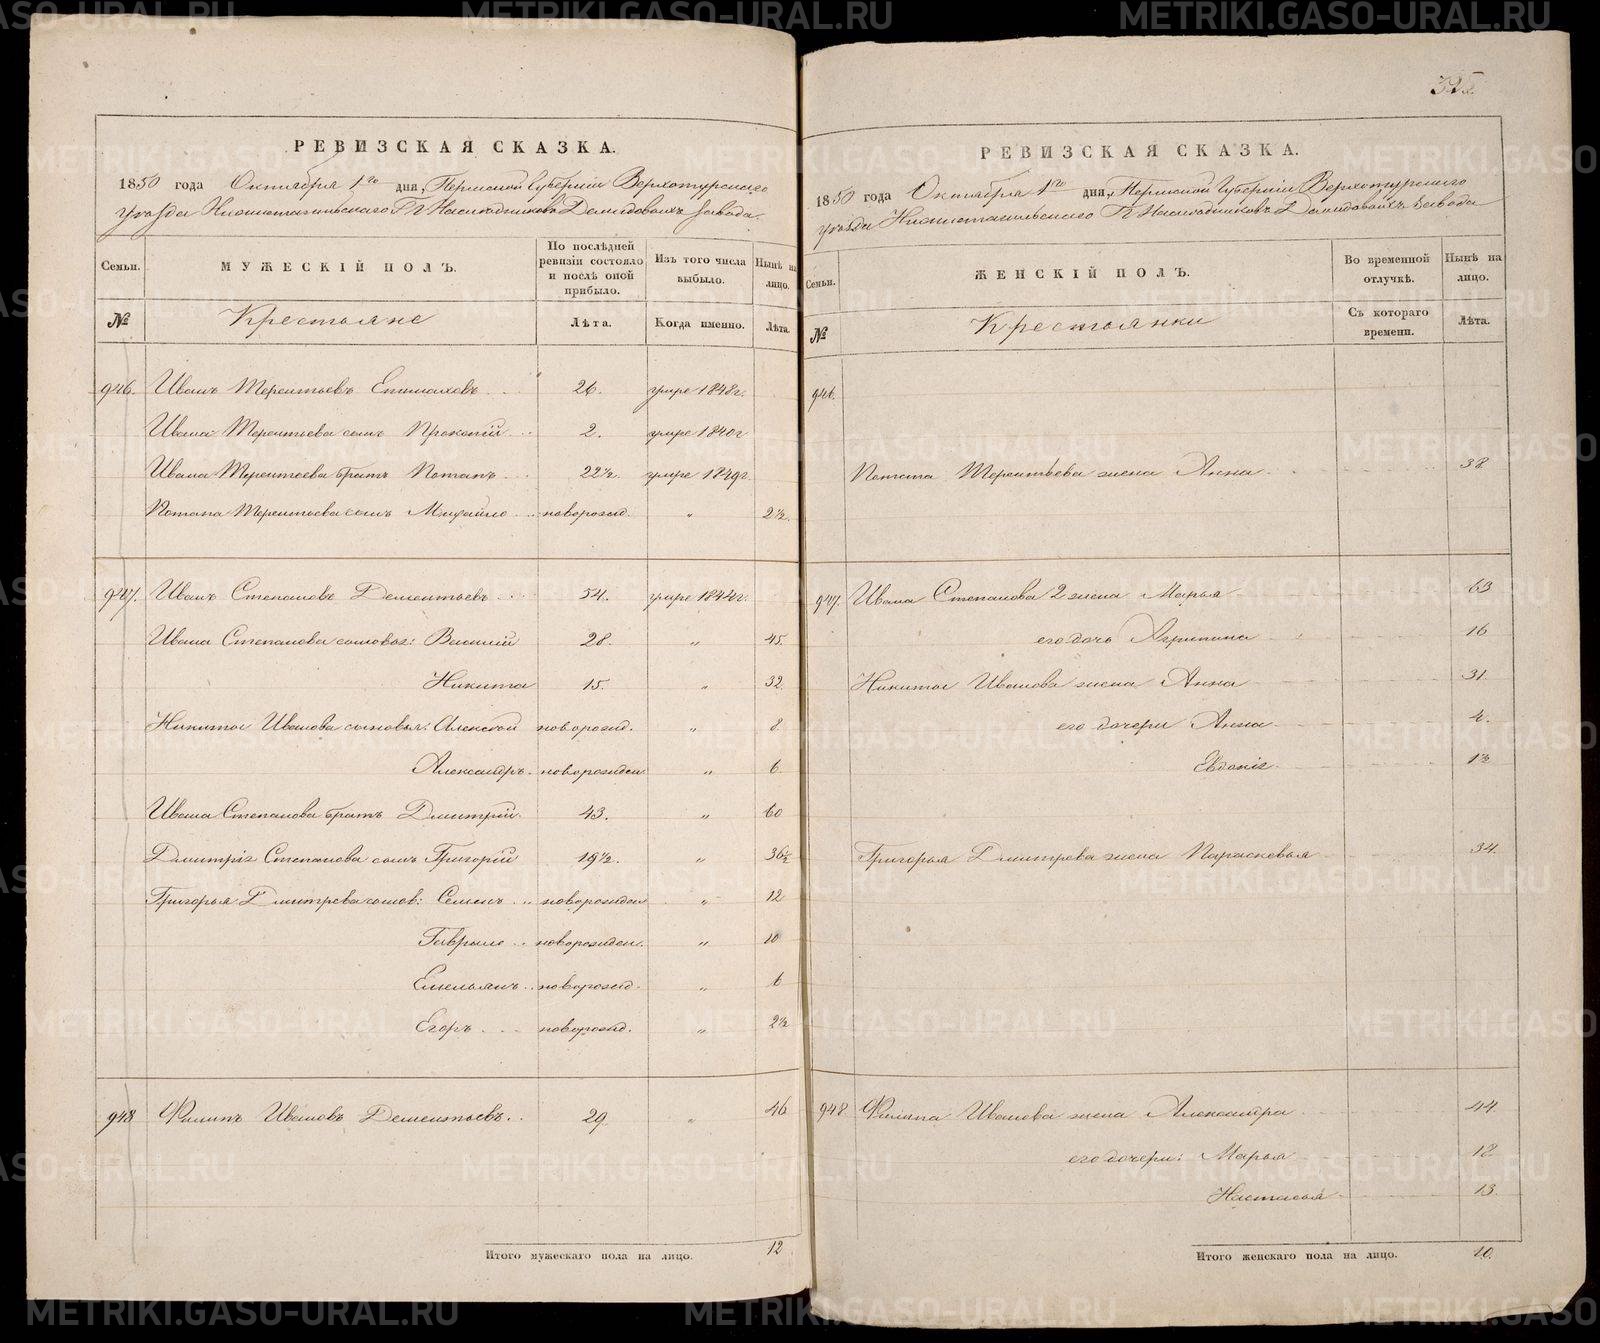 325
РЕВИЗСКАЯ СКАЗКА.
1850 года Октября 1го дня, Пермской Губерніи Верхотурскаго
уѣзда Нижнетагильскаго Гг Наслѣдниковъ Демидовыхъ завода.
Семьи.
МУЖЕСКІЙ ПОЛЪ.
По послѣдней ревизіи состояло и послѣ оной прибыло.
Изъ того числа выбыло.
Нынѣ на лицо.
№
Крестьяне
Лѣта.
Когда именно.
Лѣта.
946. Иванъ Терентьевъ 26. умре 1848г.
Ивана Терентьева сынъ Прокопій 2. умре 1840г
Ивана Терентьева братъ Потапъ 22½. умре 1849г.
Потапа Терентьева сынъ Михайло новорожд. " 2½.
947. Иванъ Степановъ Дементьевъ 54. умре 1844г.
Ивана Степанова сыновья: Василій 28. " 45.
Никита 15. " 32.
Никиты Иванова сыновья: Алексѣй новорожд. " 8.
Александръ новорожден " 6
Ивана Степанова братъ Дмитрій 43. " 60
Дмитрія Степанова сынъ Григорій 19½. " 36½
Григорья Дмитрева сынов: Семенъ новорожден " 12
Гаврило новорожден. " 10
Емельянъ новорожд. " 6
Егоръ новорожд. " 2½
948 Филипъ Ивановъ Дементьевъ. 29. " 46
Итого мужескаго пола на лицо. 12
РЕВИЗСКАЯ СКАЗКА.
1850 года Октября 1го дня, Пермской Губерніи Верхотурскаго
уѣзда Нижнетагильскаго Гг Наслѣдниковъ Демидовыхъ завода
Семьи.
ЖЕНСКІЙ ПОЛЪ.
Во временной отлучкѣ.
Нынѣ на лицо.
№
Крестьянки
Съ котораго времени.
Лѣта.
946.
Потапа Терентьева жена Анна 38
947. Ивана Степанова 2 жена Марья 63
его дочь Агрипина 16
Никиты Иванова жена Анна 31.
его дочери Анна
Евдокія 1½
Григорья Дмитрева жена Парасковья 34.
948 Филипа Иванова жена Александра 44
его дочери: Марья 18
Настасья 13.
Итого женскаго пола на лицо. 10.
METRIKI.GASO-URAL.RU